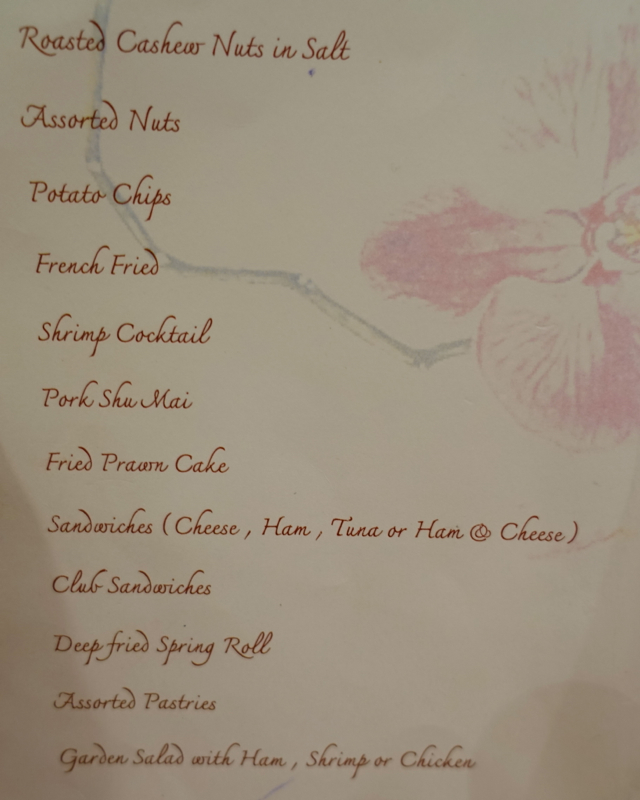 Roasted Cashew Nuts in Salt
Assorted Nuts
Potato Chips
French Fried
Shrimp Cocktail
Pork Shu Mai
Fried Prawn Cake
Sandwiches ( Cheese , Ham , Tuna or Ham & Cheese )
Club Sandwiches
Deep fried Spring Roll
Assorted Pastries
Garden Salad with Ham , Shrimp or Chicken